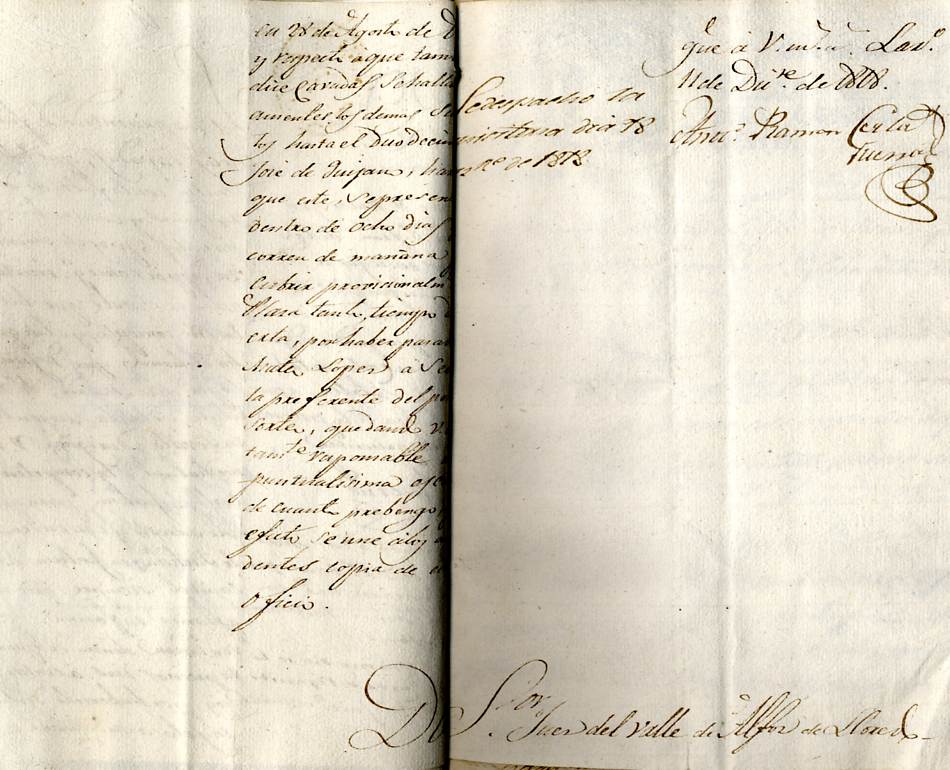 en 28 de Agosto de
y respecto a que tam
dice Caradas, se halla
ausentes los demas
tos hasta el duodecim
José de Quijan, ha
que este, se presen
dentro de ocho dias
correo de mañana
cubrir provisionalm
Plaza tanto tiempo
erta, por haber pasa
Mateo Lopez a Se
ta preferente del
sorteo, quedando V.
tamte. responsable
puntualisima
de cuanto prebengo,
efecto se une
dentes copia de
oficio.
Se despacho la
misiva dia 18
de 1818
que a V. m. a. Lar.o
11 de Dizre. de 1818.
Ramon
Sor.
Juez del valle de Alfoz de Lloredo